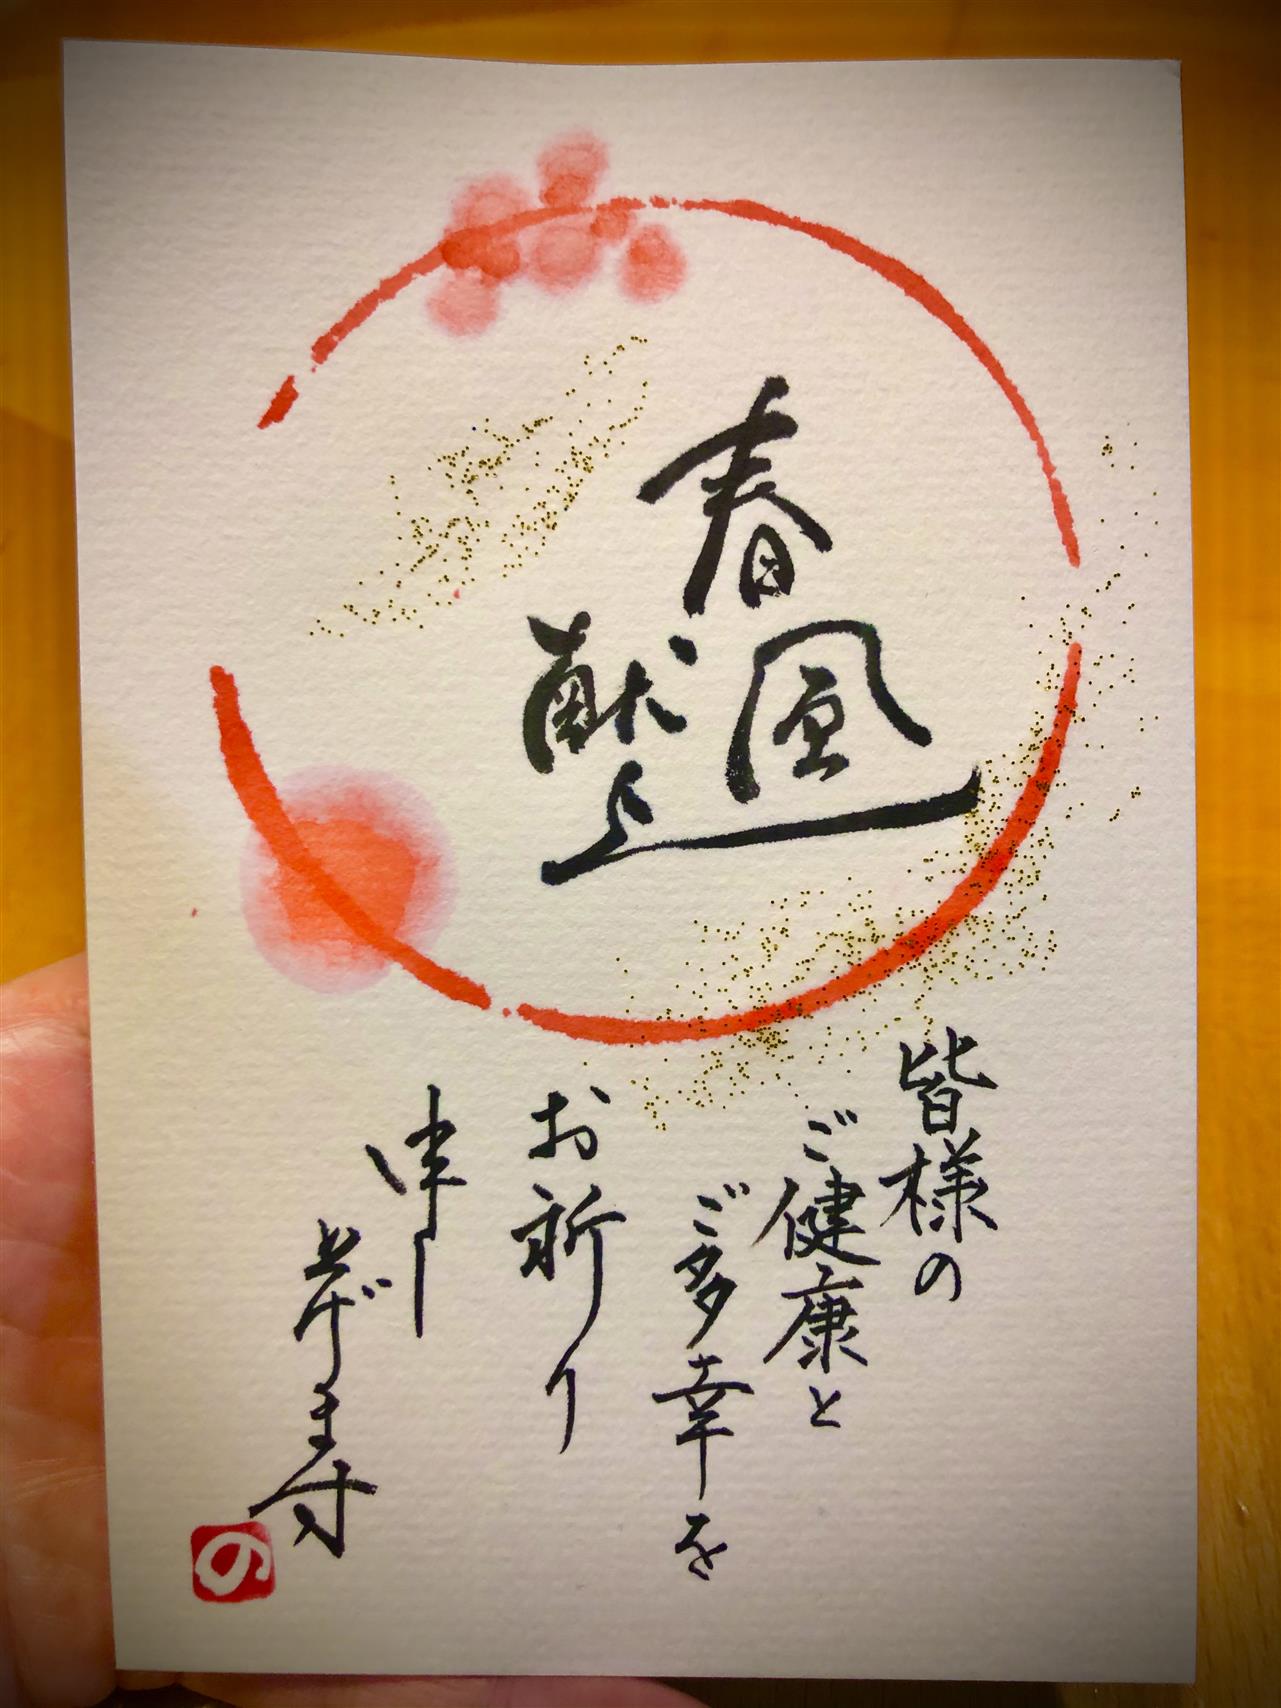 春風
献上
皆様の
ご健康と
ご多幸を
お祈り
申し
上げます
の